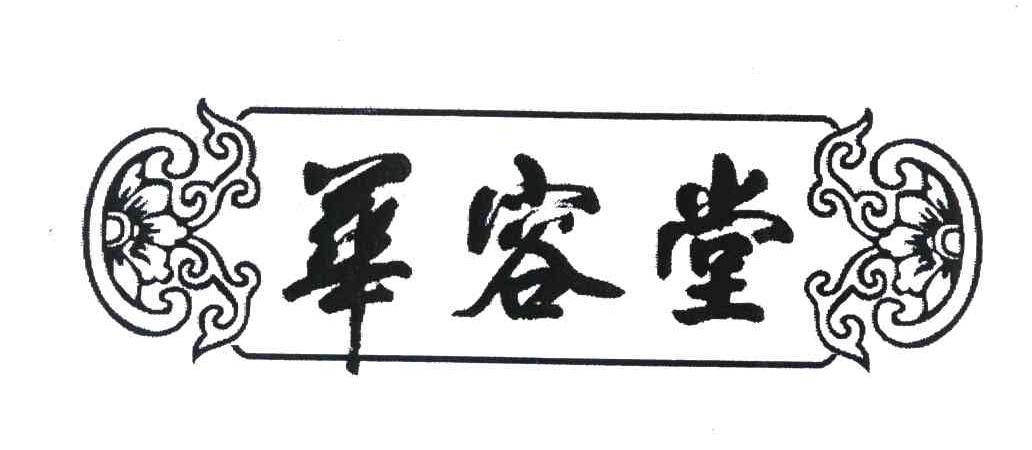 華容堂